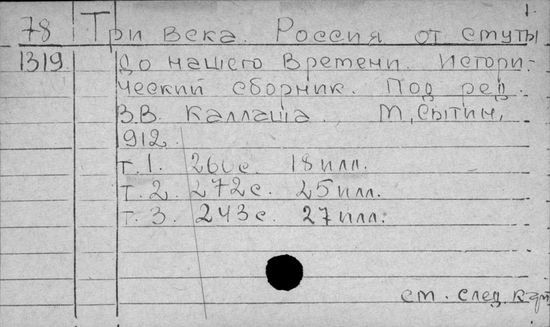 1.
78 Три века. Россия от смуты
1319 до нашего времени. Истори-
ческий сборник. Под ред.
В.В. Каллаша. М, Сытин,
912.
т. 1. 260с. 18 илл.
т. 2. 272с. 25 илл.
т. 3. 243с. 27 илл.
см. след. карт